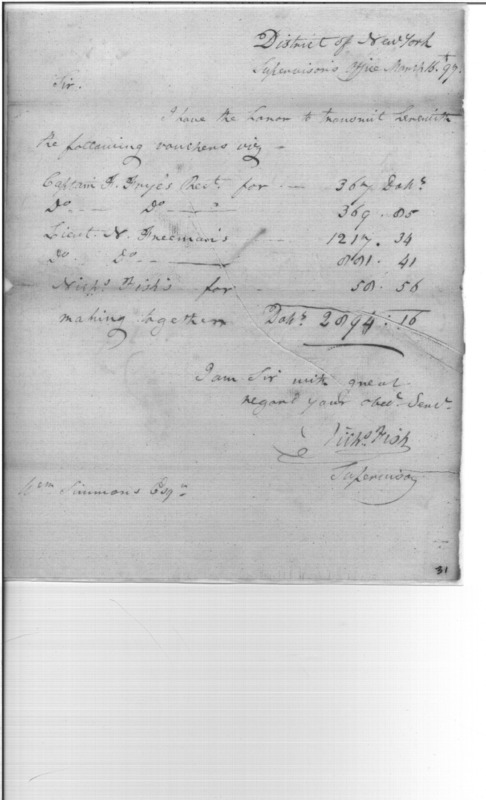 District of New York
Supervisor's Office March 16. 97.
Sir.
I have the honor to transmit herewith
the following vouchers viz
Captain F. Frye's Rect. for - 367 Dolrs.
Do. - Do. - 369. 85
Lieut. N. Freeman's - 1217. 34
Do. Do. - 881. 41
Nichs. Fish's for - 58. 56
making together Dolrs. 2894: 16
I am Sir with great
regard your obedt. Servt.
Nichs. Fish
Supervisor
Wm Simmons Esqr.
31